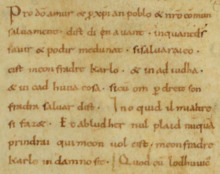 Pro dō amur & p xp̄ian poblo & nr̄o comun
saluament. dist di en auant. inquantds
sauir & podir medunat. sisaluaraieo.
cist meon fradre Karlo. & in adiudha.
& in cad huna cosa. sicū om p dreit son
fradra saluar dist. Ino quid il mialtre
si fazet. Et abludher nul plaid nūquā
prindrai qui meon uol cist. meonfradre
Karle in damno sit. Quod cū lodhuuic